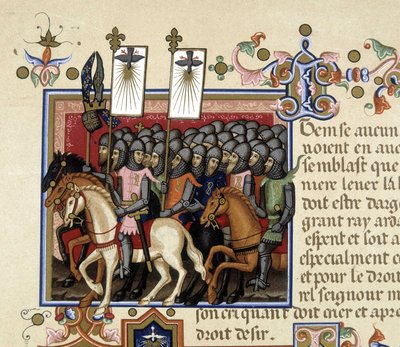 Item se aucun
voient en auc
semblast que
mere lever la b
doit estre darg
grant ray arda
espent et soit a
especialment e
et pour le droit
rel seignour m
son cri quant doit crier et apre
droit desir.